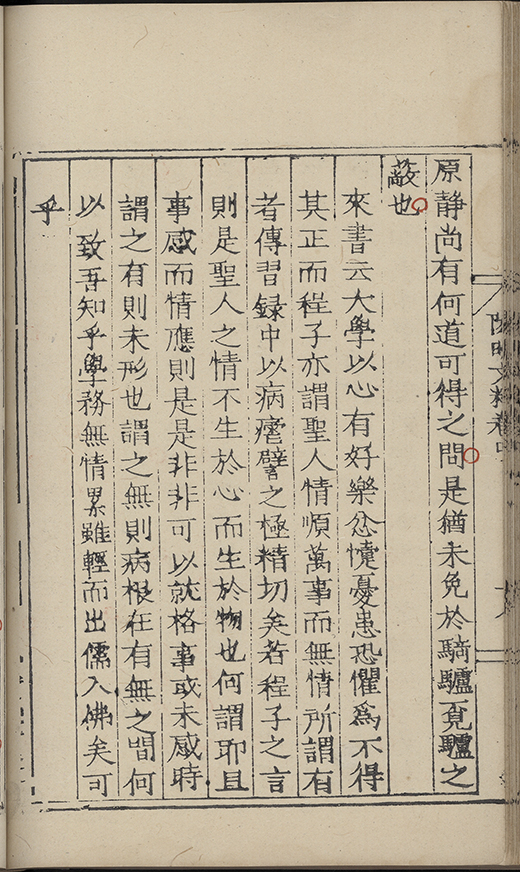 原靜尚有何道可得之問是猶未免於騎驢覓驢之
蔽也
來書云大學以心有好樂忿懥憂患恐懼爲不得
其正而程子亦謂聖人情順萬事而無情所謂有
者傳習録中以病瘧譬之極精切矣若程子之言
則是聖人之情不生於心而生於物也何謂耶且
事感而情應則是是非非可以就格事或未感時
謂之有則未形也謂之無則病根在有無之間何
以致吾知乎學務無情累雖輕而出儒入佛矣可
乎
陽明文粹卷